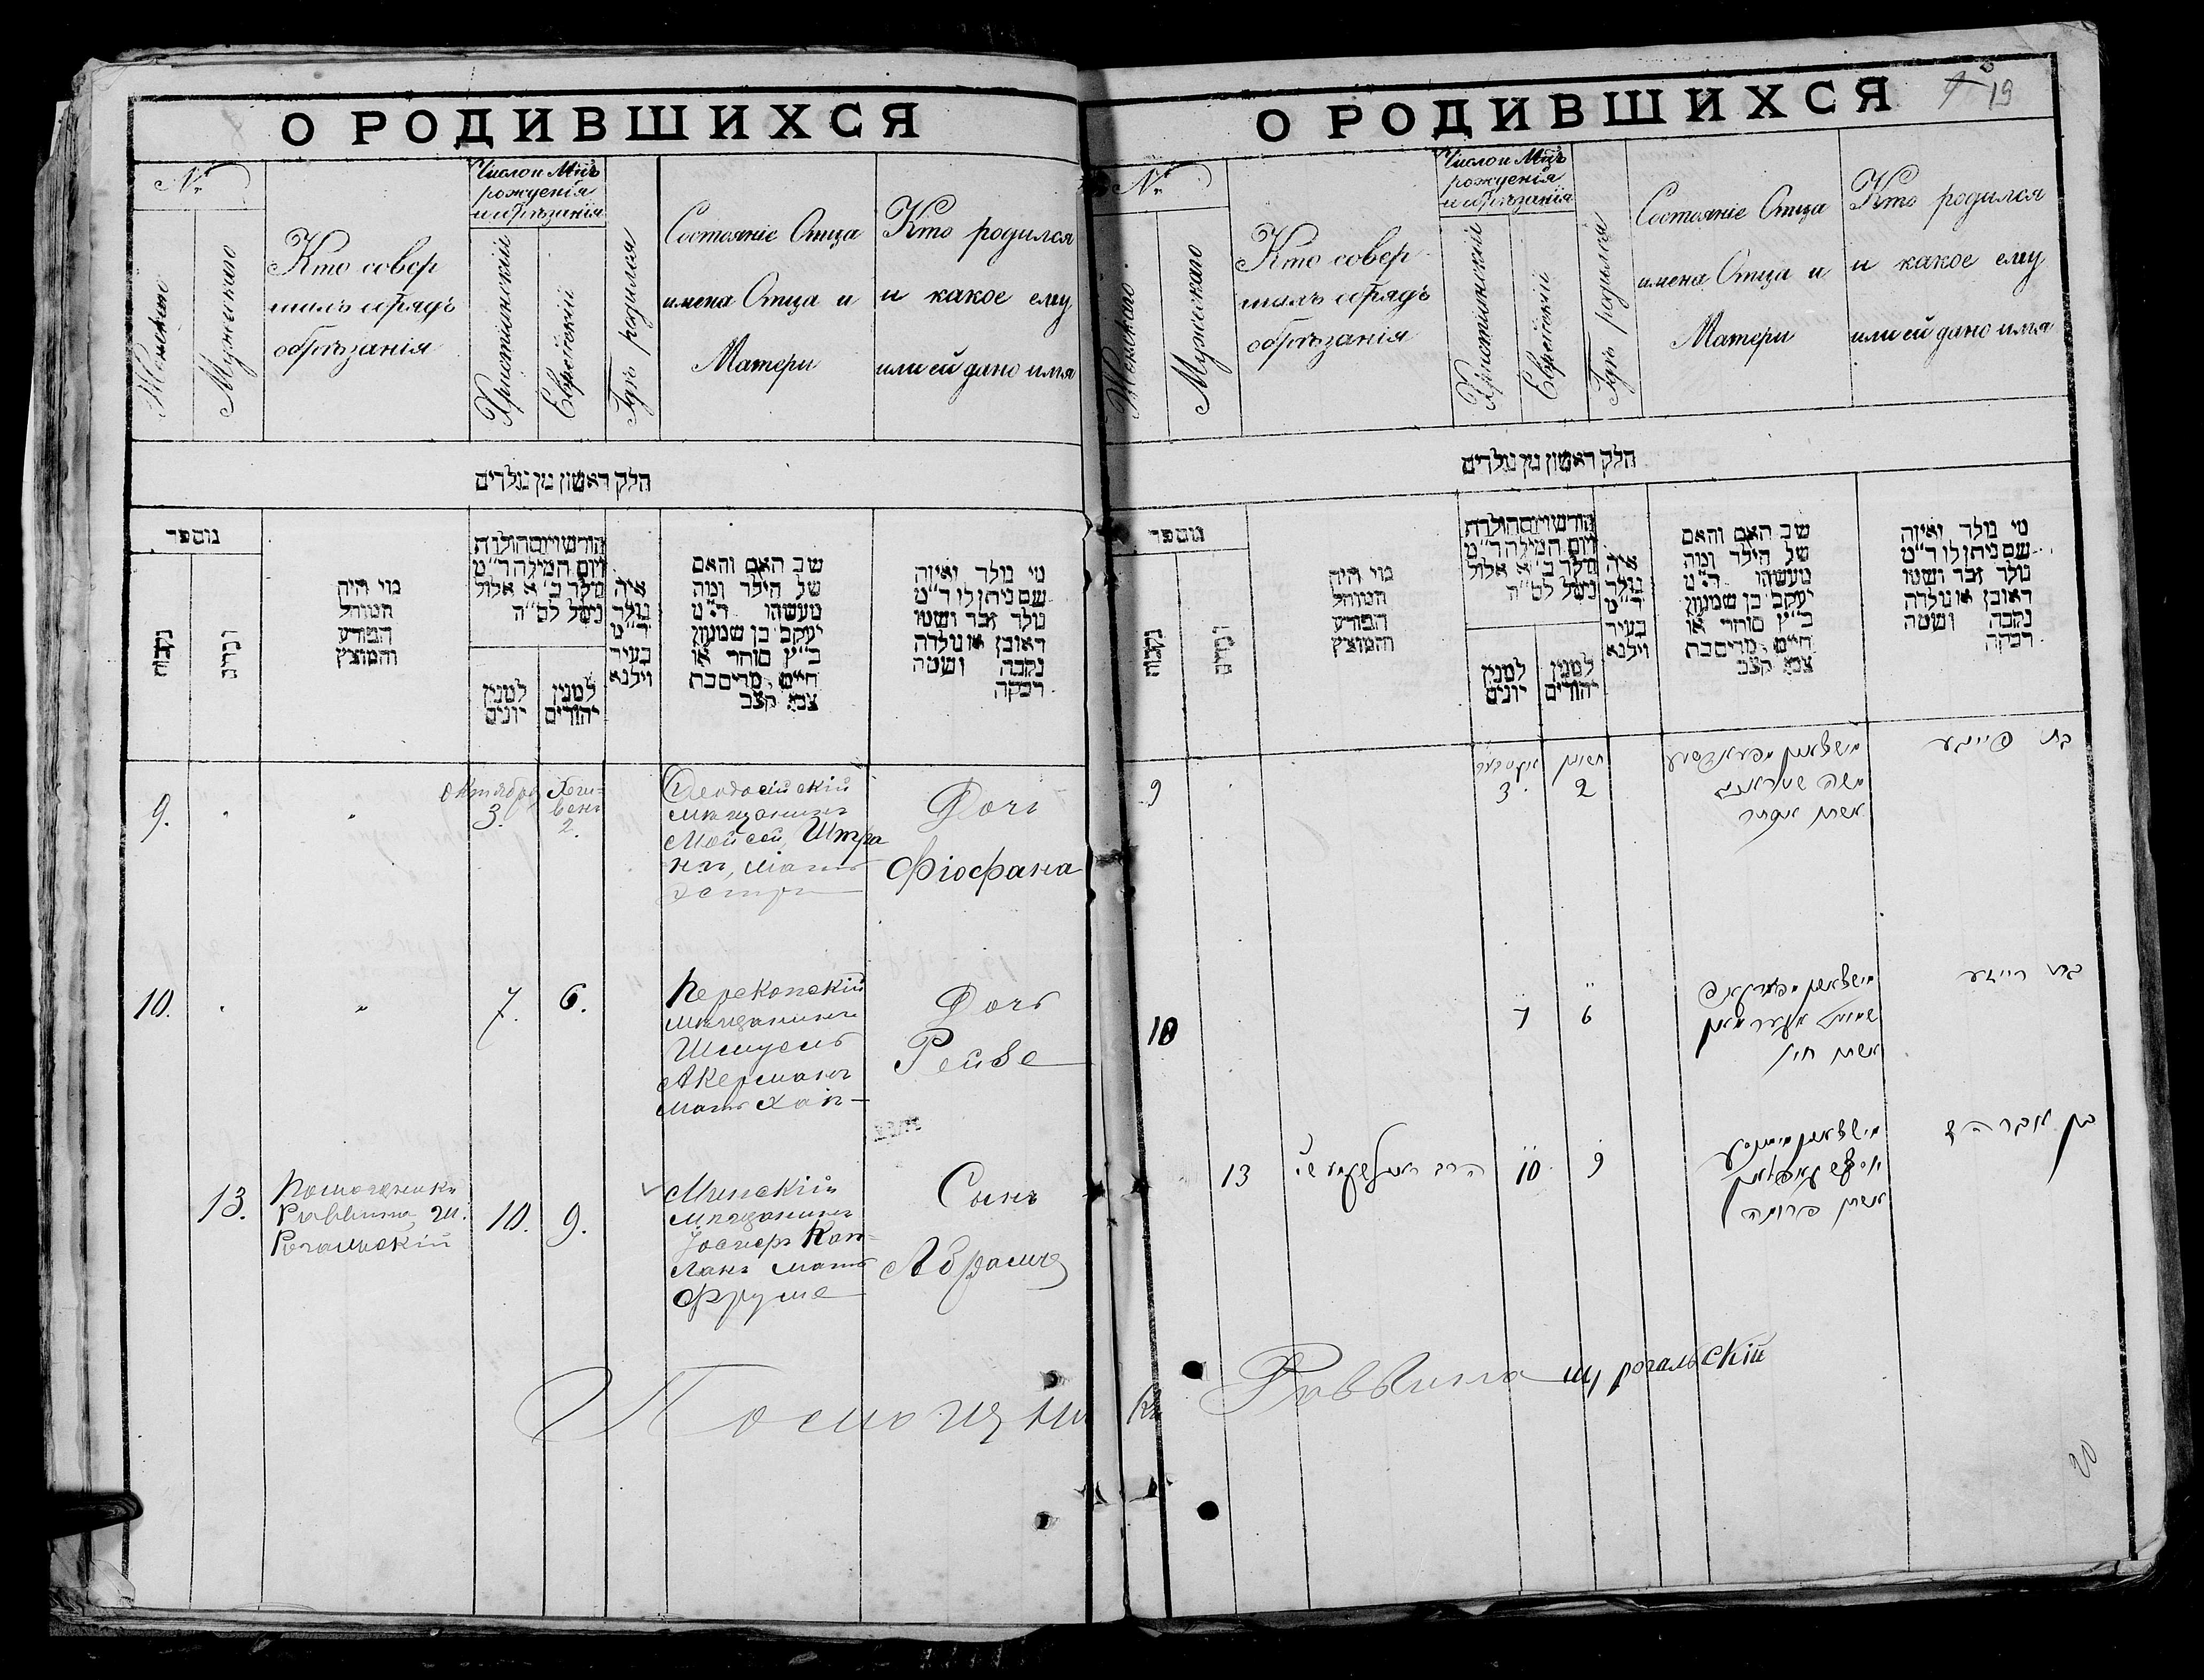 О РОДИВШИХСЯ
№
Женскаго
Мужескаго
Кто совер
шилъ обрядъ
обрѣзанія
Число и Мцъ
рожденія
и обрѣзанія
Христіанскій
Еврейскій
Гдѣ родился
Состояніе Отца
имена Отца и
Матери
Кто родился
и какое ему
или ей дано имя
חלק ראשון מן נולדים
מספר
נקבות
זכרים
מי היה
המוהל
הפורע
והמוצץ
חודש ויום הולדת
ויום המילה ד״מ
נולד ב׳ א אלול
ניפול לס״ה
למנין
יונים
למנין
יהודים
איה
נולד
ד״מ
בעיר
ווילנא
שב האם והאם
של הילד ומה
מעשהו ד״מ
יעקב בן שמעון
כ״ץ סוחר או
חיים מרים בת
צבי קצב
מי נולד ואיזה
שם ניתן לו ד״מ
נולד זכר ושמו
ראובן או נולדה
נקבה ושמה
רבקה
9.
Октября
3.
Хеш-
венъ
2.
Ѳеодосійскій
мѣщанинъ
Мойсей Штра
мать
Эстр
Дочь
Фіосфана
10.
7.
6.
Перекопскій
мѣщанинъ
Шмуель
Акерманъ
мать Хая
Дочь
Рейзе
13.
Помощникъ
Раввина, Ш.
Рогальскій
10.
9.
Минскій
мѣщанинъ
Іосифъ Кап-
ланъ мать
Фруме
Сынъ
Абрамъ
Помощникъ Раввина Ш, Рогальскій
О РОДИВШИХСЯ
19
№
Женскаго
Мужескаго
Кто совер
шилъ обрядъ
обрѣзанія
Число и Мцъ
рожденія
и обрѣзанія
Христіанскій
Еврейскій
Гдѣ родился
Состояніе Отца
имена Отца и
Матери
Кто родился
и какое ему
или ей дано имя
חלק ראשון מן נולדים
מספר
נקבות
זכרים
מי היה
המוהל
הפורע
והמוצץ
חודש ויום הולדת
ויום המילה ד״מ
נולד ב׳ א אלול
ניפול לס״ה
למנין
יונים
למנין
יהודים
איה
נולד
ד״מ
בעיר
ווילנא
שב האם והאם
של הילד ומה
מעשהו ד״מ
יעקב בן שמעון
כ״ץ סוחר או
חיים מרים בת
צבי קצב
מי נולד ואיזה
שם ניתן לו ד״מ
נולד זכר ושמו
ראובן או נולדה
נקבה ושמה
רבקה
9
3
חשון
2
משה
אשתו אסתר
בת
10
7
6
שמואל אקערמאן
אשתו חיה
בת רייזע
13
הרב
10
9
יוסף קאפלאן
אשתו פרומה
בן אברהם
20